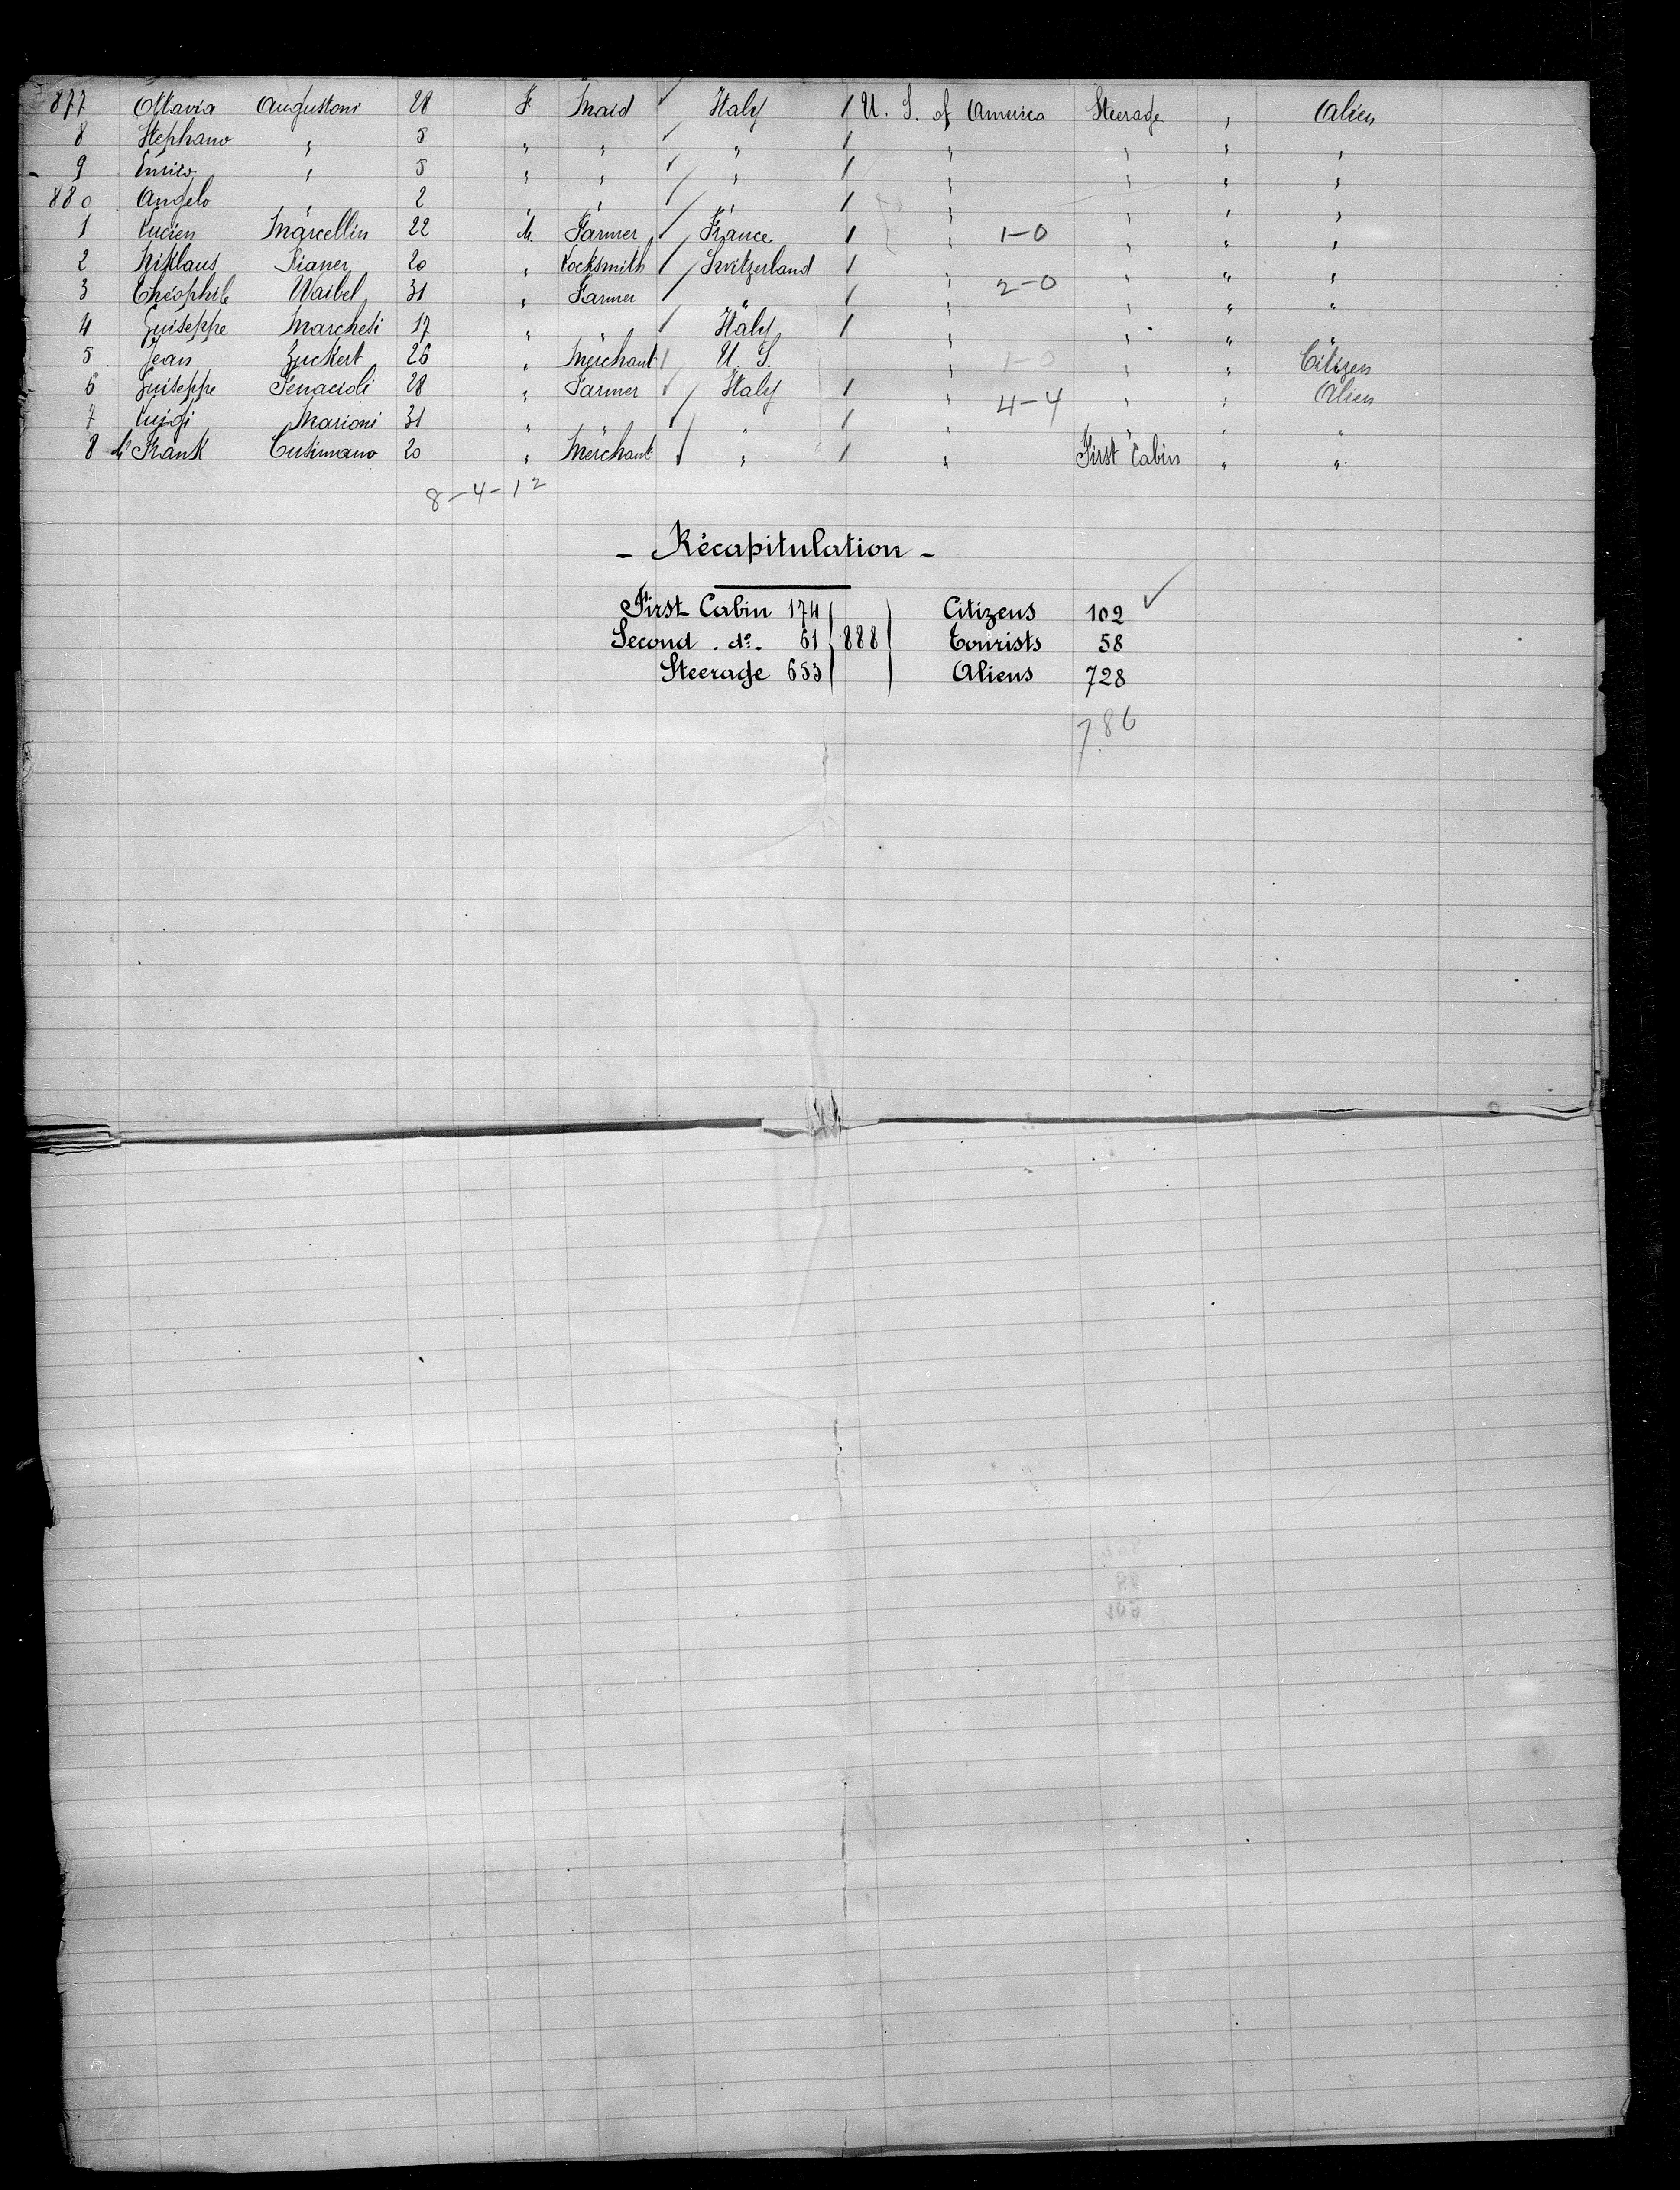 877 Ottavia Augustoni 28 F Maid Italy / U. S. of America Steerage " Alien
8 Stephano " 5 " " " / " " " "
9 Enrico " 5 " " " / " " " "
880 Angelo " 2 " " " / " " " "
1 Lucien Marcellin 22 M. Farmer France / " 1-0 " " "
2 Niklaus Sianer 20 " Locksmith Switzerland / " " " "
3 Théophile Waibel 31 " Farmer " / " 2-0 " " "
4 Guiseppe Marchesi 17 " " Italy / " " " "
5 Jean Zuckert 26 " Merchant U. S. " 1-0 " " Citizen
6 Guiseppe Penacioli 28 " Farmer Italy / " 4-4 " " Alien
7 Luigi Marioni 31 " " " / " " " "
8 Mr Frank Cusimano 20 " Merchant " / " First Cabin " "
8-4-12
- Récapitulation -
First Cabin 174 Citizens 102 ✓
Second . do. 61 888 Tourists 58
Steerage 653 Aliens 728
786